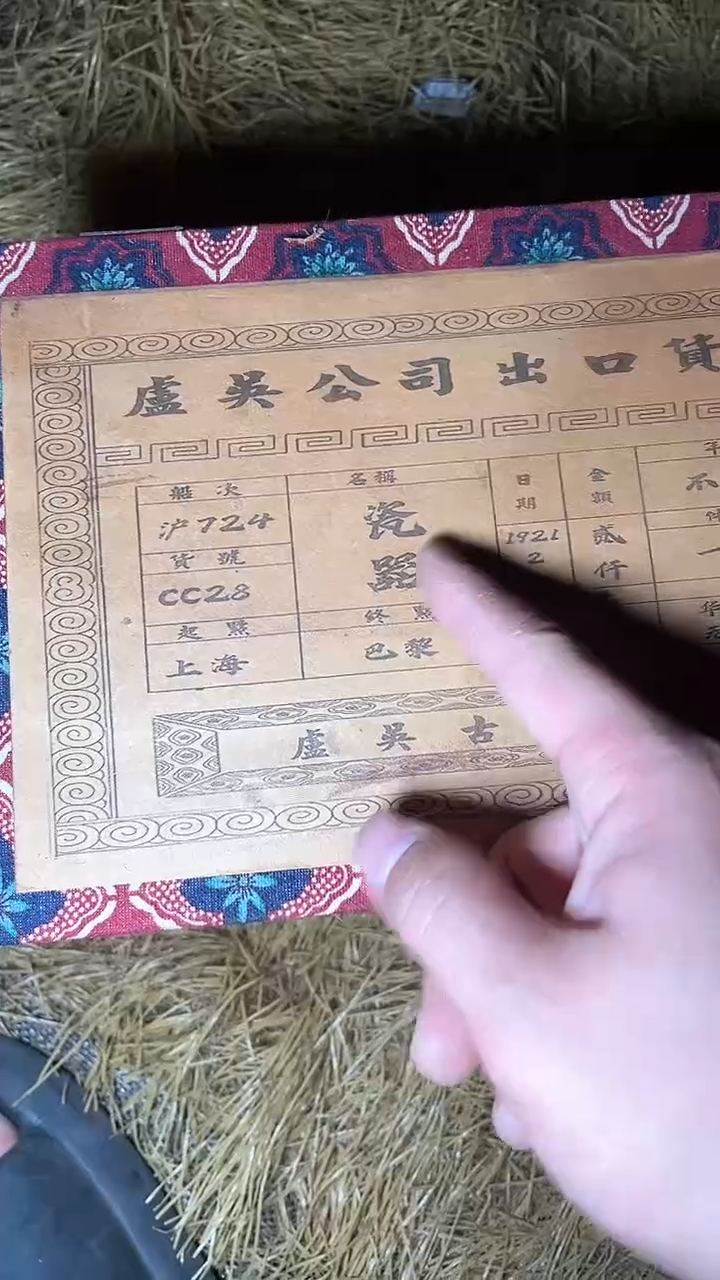 盧吳公司出口貨
船次 名稱 日期 金額 年
沪724 瓷器 1921 2 贰仟 不
貨號
CC28
起點 終點 华
上海 巴黎
盧吳古